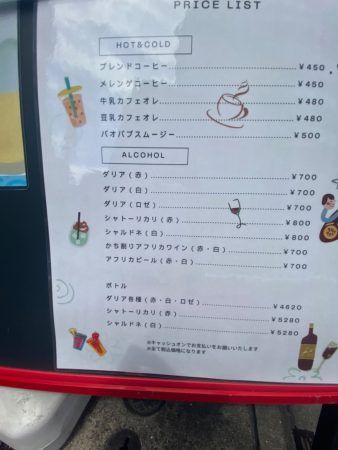 PRICE LIST
HOT&COLD
ブレンドコーヒー ¥450
メレンゲコーヒー ¥450
牛乳カフェオレ ¥480
豆乳カフェオレ ¥480
バオバブスムージー ¥500
ALCOHOL
ダリア(赤) ¥700
ダリア(白) ¥700
ダリア(ロゼ) ¥700
シャトーリカリ(赤) ¥800
シャルドネ(白) ¥800
かち割りアフリカワイン(赤・白) ¥700
アフリカビール(赤・白) ¥700
ボトル
ダリア各種(赤・白・ロゼ) ¥4620
シャトーリカリ(赤) ¥5280
シャルドネ(白) ¥5280
※キャッシュオンでお支払いをお願いいたします
※全て税込価格になります